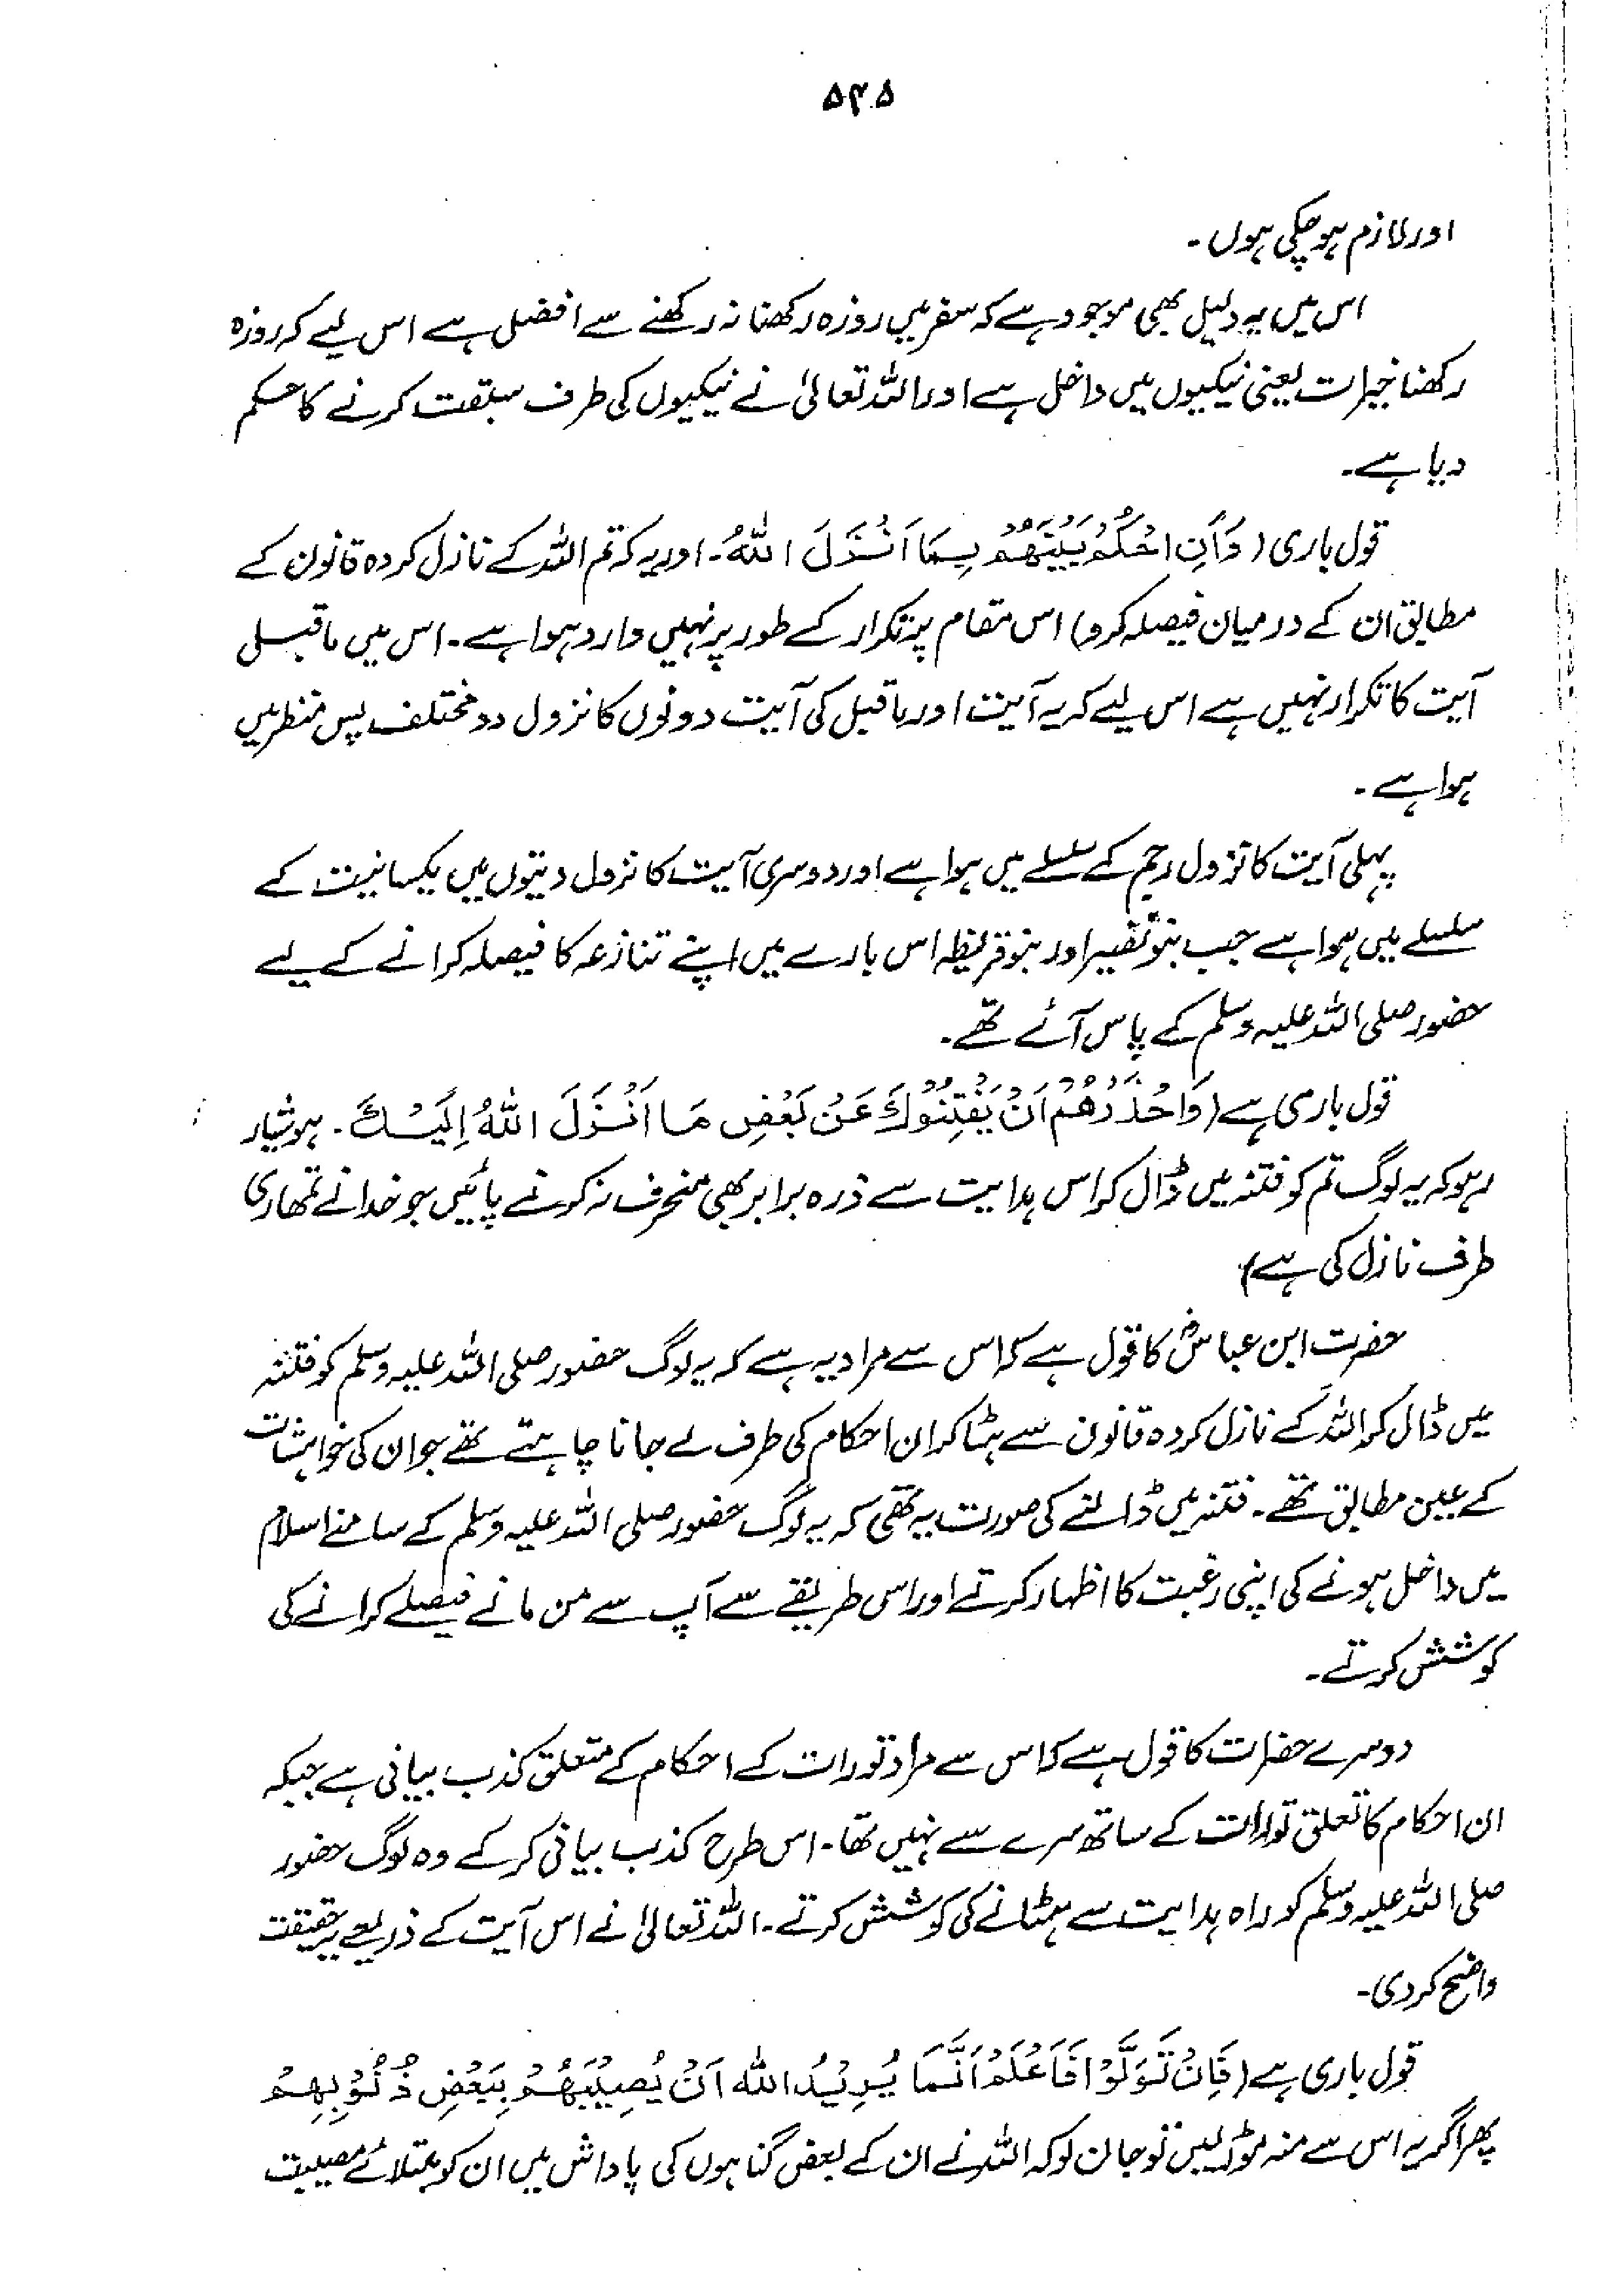 ۵۴۵
اور لازم ہو چکی ہوں۔
اس میں یہ دلیل بھی موجود ہے کہ سفر میں روزہ رکھنا نہ رکھنے سے افضل ہے اس لیے کہ روزہ
رکھنا خیرات یعنی نیکیوں میں داخل ہے اور اللہ تعالیٰ نے نیکیوں کی طرف سبقت کرنے کا حکم
دیا ہے۔
قول باری (وَاَنِ احْكُمْ بَيْنَهُمْ بِمَا اَنْزَلَ اللهُ۔ اور یہ کہ تم اللہ کے نازل کردہ قانون کے
مطابق ان کے درمیان فیصلہ کرو) اس مقام پر تکرار کے طور پر نہیں وارد ہوا ہے۔ اس میں ماقبل
آیت کا تکرار نہیں ہے اس لیے کہ یہ آیت اور ماقبل کی آیت دونوں کا نزول دو مختلف پس منظر میں
ہوا ہے۔
پہلی آیت کا نزول رجم کے سلسلے میں ہوا ہے اور دوسری آیت کا نزول دیتوں میں یکسانیت کے
سلسلے میں ہوا ہے جب بنو نضیر اور بنو قریظہ اس بارے میں اپنے تنازعہ کا فیصلہ کرانے کے لیے
حضور صلی اللہ علیہ وسلم کے پاس آئے تھے۔
قول باری ہے (وَاحْذَرْهُمْ اَنْ يَفْتِنُوْكَ عَنْ بَعْضِ مَا اَنْزَلَ اللهُ اِلَيْكَ۔ ہوشیار
رہو کہ یہ لوگ تم کو فتنہ میں ڈال کر اس ہدایت سے ذرہ برابر بھی منحرف نہ کرنے پائیں جو خدا نے تمھاری
طرف نازل کی ہے)
حضرت ابن عباسؓ کا قول ہے کہ اس سے مراد یہ ہے کہ یہ لوگ حضور صلی اللہ علیہ وسلم کو فتنہ
میں ڈال کر اللہ کے نازل کردہ قانون سے ہٹا کر ان احکام کی طرف لے جانا چاہتے تھے جو ان کی خواہشات
کے عین مطابق تھے۔ فتنہ میں ڈالنے کی صورت یہ تھی کہ یہ لوگ حضور صلی اللہ علیہ وسلم کے سامنے اسلام
میں داخل ہونے کی اپنی رغبت کا اظہار کرتے اور اس طریقے سے آپ سے من مانے فیصلے کرانے کی
کوشش کرتے۔
دوسرے حضرات کا قول ہے کہ اس سے مراد تورات کے احکام کے متعلق کذب بیانی ہے جبکہ
ان احکام کا تعلق تورات کے ساتھ سرے سے نہیں تھا۔ اس طرح کذب بیانی کر کے وہ لوگ حضور
صلی اللہ علیہ وسلم کو راہ ہدایت سے ہٹانے کی کوشش کرتے۔ اللہ تعالیٰ نے اس آیت کے ذریعے یہ حقیقت
واضح کر دی۔
قول باری ہے (فَاِنْ تَوَلَّوْا فَاعْلَمْ اَنَّمَا يُرِيْدُ اللهُ اَنْ يُصِيْبَهُمْ بِبَعْضِ ذُنُوْبِهِمْ
پھر اگر یہ اس سے منہ موڑ لیں تو جان لو کہ اللہ نے ان کے بعض گناہوں کی پاداش میں ان کو مبتلائے مصیبت